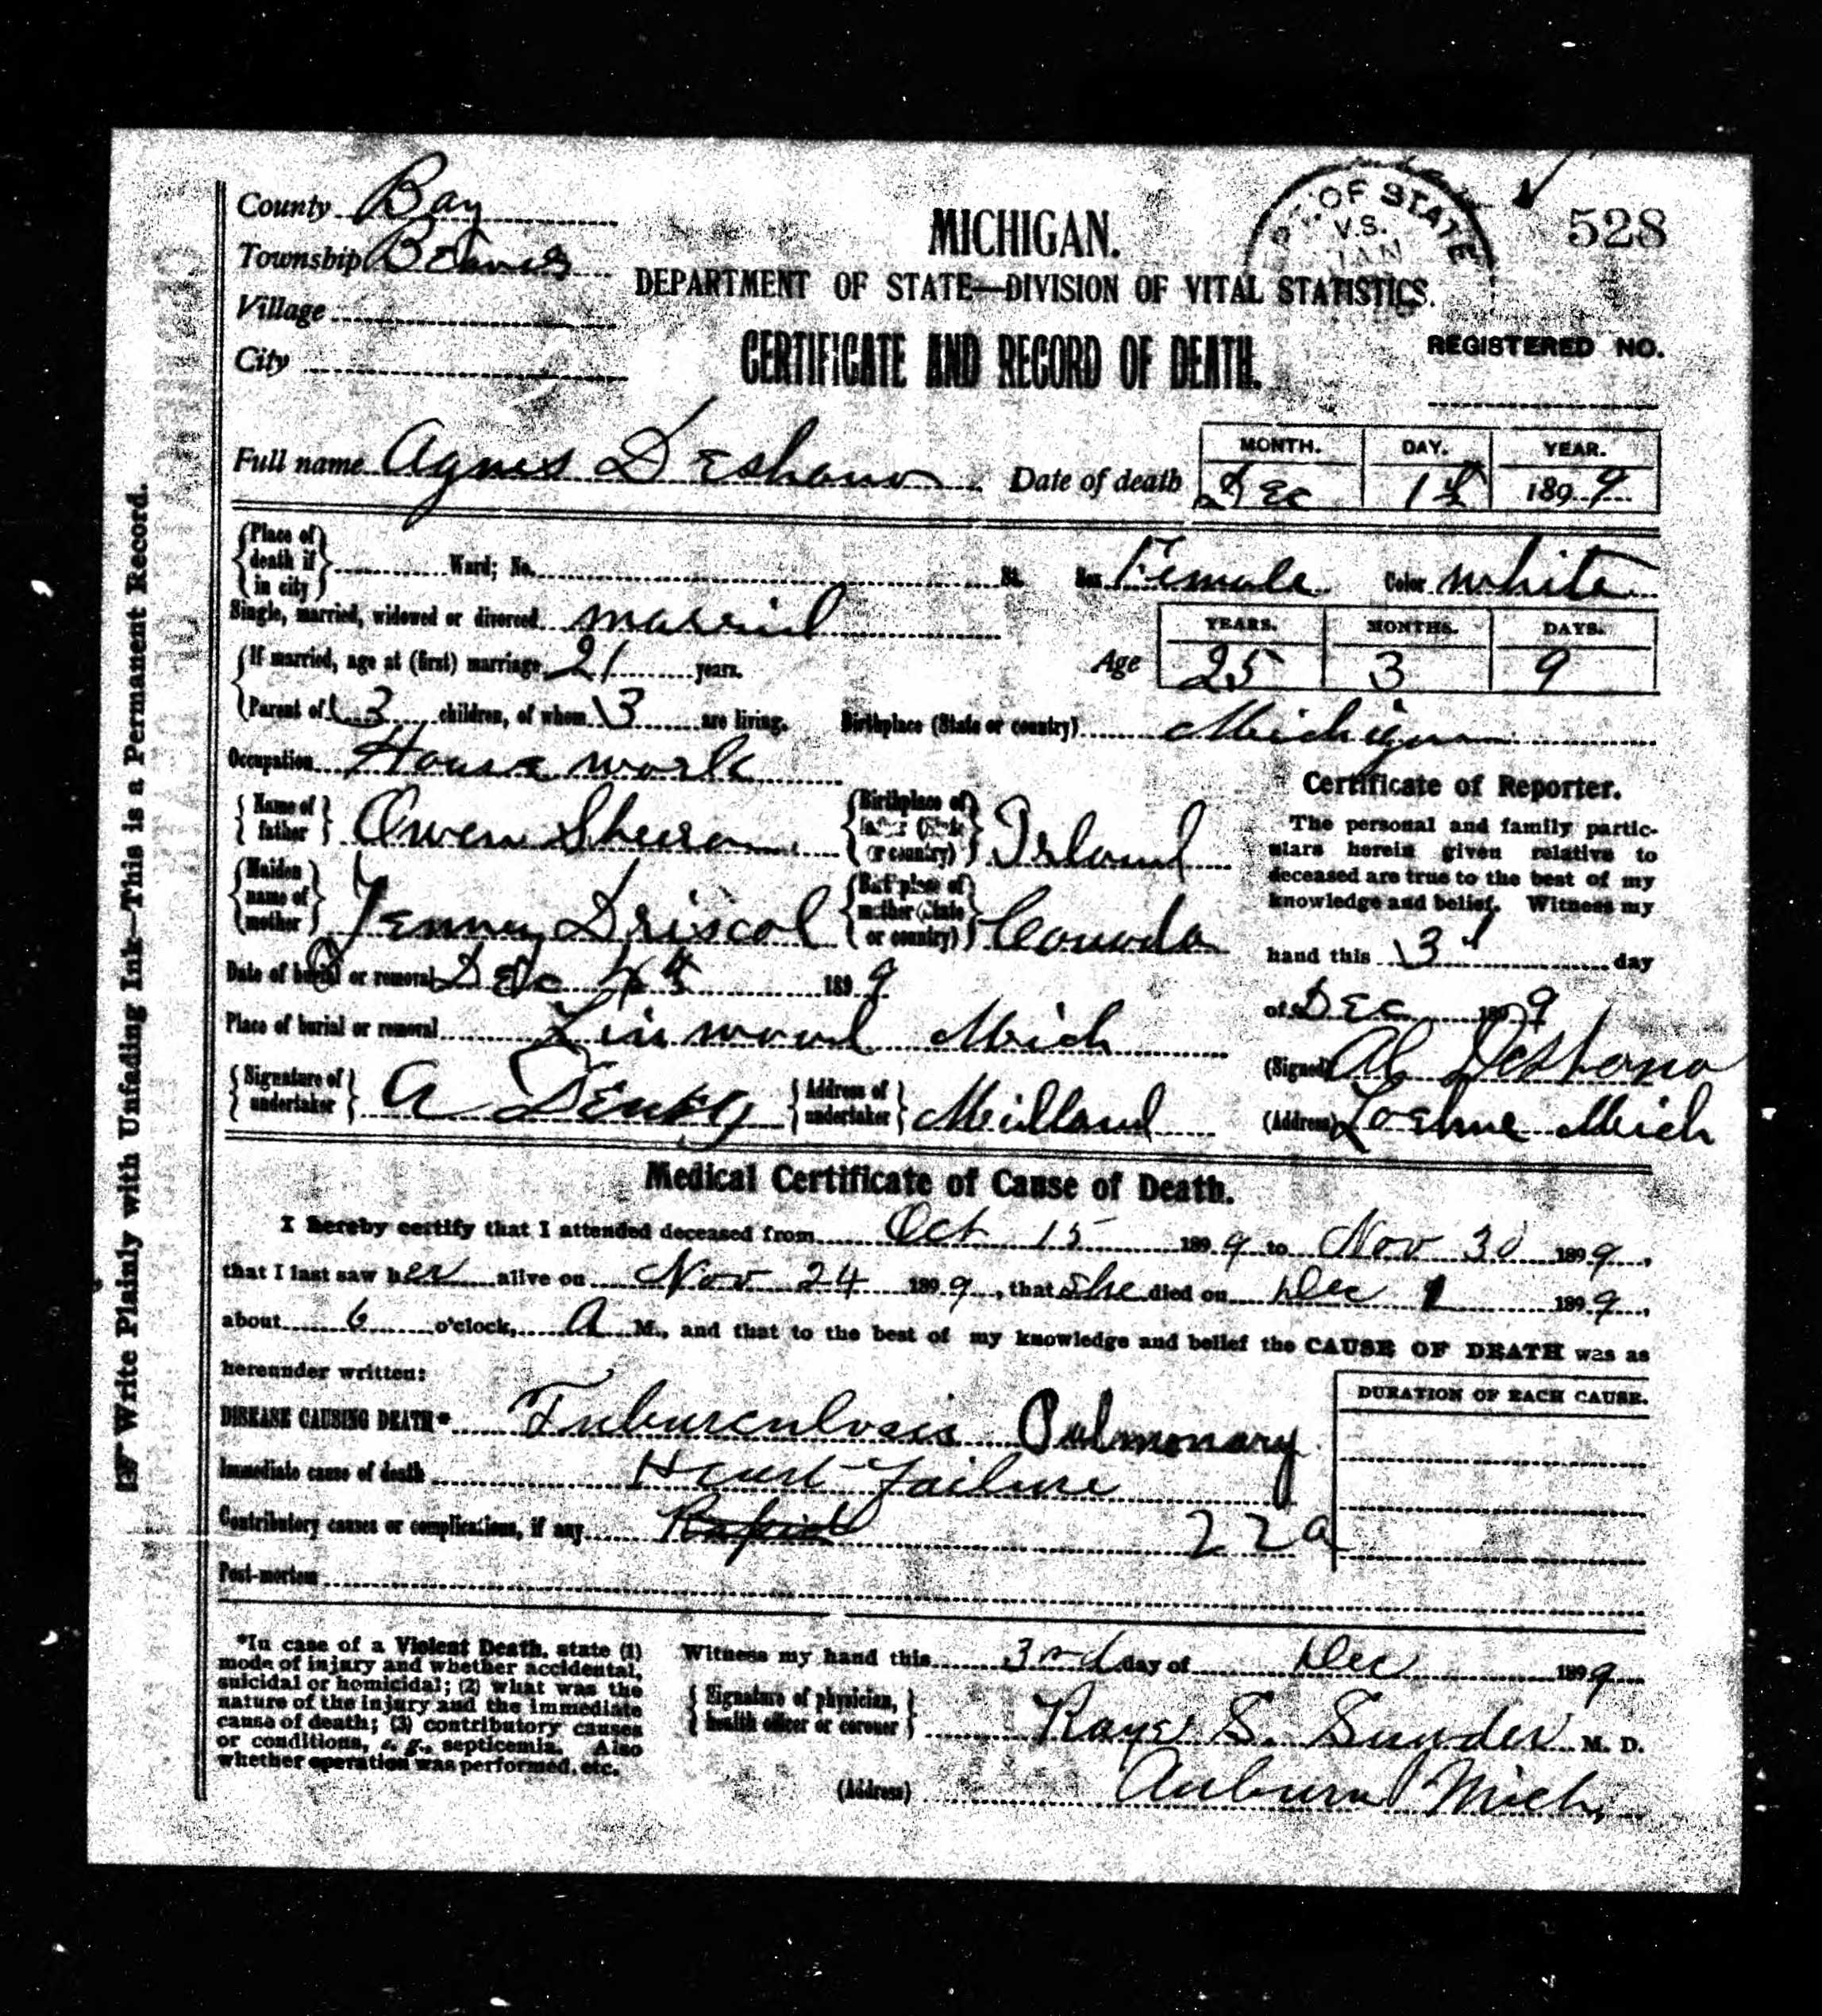 County Bay
Township
Village
City
MICHIGAN.
DEPARTMENT OF STATE—DIVISION OF VITAL STATISTICS.
CERTIFICATE AND RECORD OF DEATH.
OF STATE
V.S.
JAN
528
REGISTERED NO.
Full name Agnes Deshano Date of death
MONTH. DAY. YEAR.
Dec 1st 1899
Place of death if in city Ward; No. St. Sex Female Color white
Single, married, widowed or divorced married
If married, age at (first) marriage 21 years.
Age
YEARS. MONTHS. DAYS.
25 3 9
Parent of 3 children, of whom 3 are living. Birthplace (State or country) Michigan
Occupation House work
Name of father Owen Birthplace of father (State or country) Irland
Maiden name of mother Jenny Driscol Birthplace of mother (State or country) Canada
Date of burial or removal Dec 1899
Place of burial or removal Linwood Mich
Signature of undertaker A Address of undertaker Midland
Certificate of Reporter.
The personal and family partic-
ulars herein given relative to
deceased are true to the best of my
knowledge and belief. Witness my
hand this 3d day
of Dec 1899
(Signed) Al DeShano
(Address) Loehne Mich
Medical Certificate of Cause of Death.
I hereby certify that I attended deceased from Oct 15 1899 to Nov 30 1899,
that I last saw her alive on Nov 24 1899, that she died on Dec 1 1899,
about 6 o'clock, A M., and that to the best of my knowledge and belief the CAUSE OF DEATH was as
hereunder written:
DURATION OF EACH CAUSE.
DISEASE CAUSING DEATH* Tuburculosis Pulmonary
Immediate cause of death Heart Failure
Contributory causes or complications, if any Rapid 22a
Post-mortem
*In case of a Violent Death, state (1)
mode of injury and whether accidental,
suicidal or homicidal; (2) what was the
nature of the injury and the immediate
cause of death; (3) contributory causes
or conditions, e. g., septicemia. Also
whether operation was performed, etc.
Witness my hand this 3rd day of Dec 1899
Signature of physician, health officer or coroner S. M. D.
(Address) Auburn Mich,
Write Plainly with Unfading Ink—This is a Permanent Record.